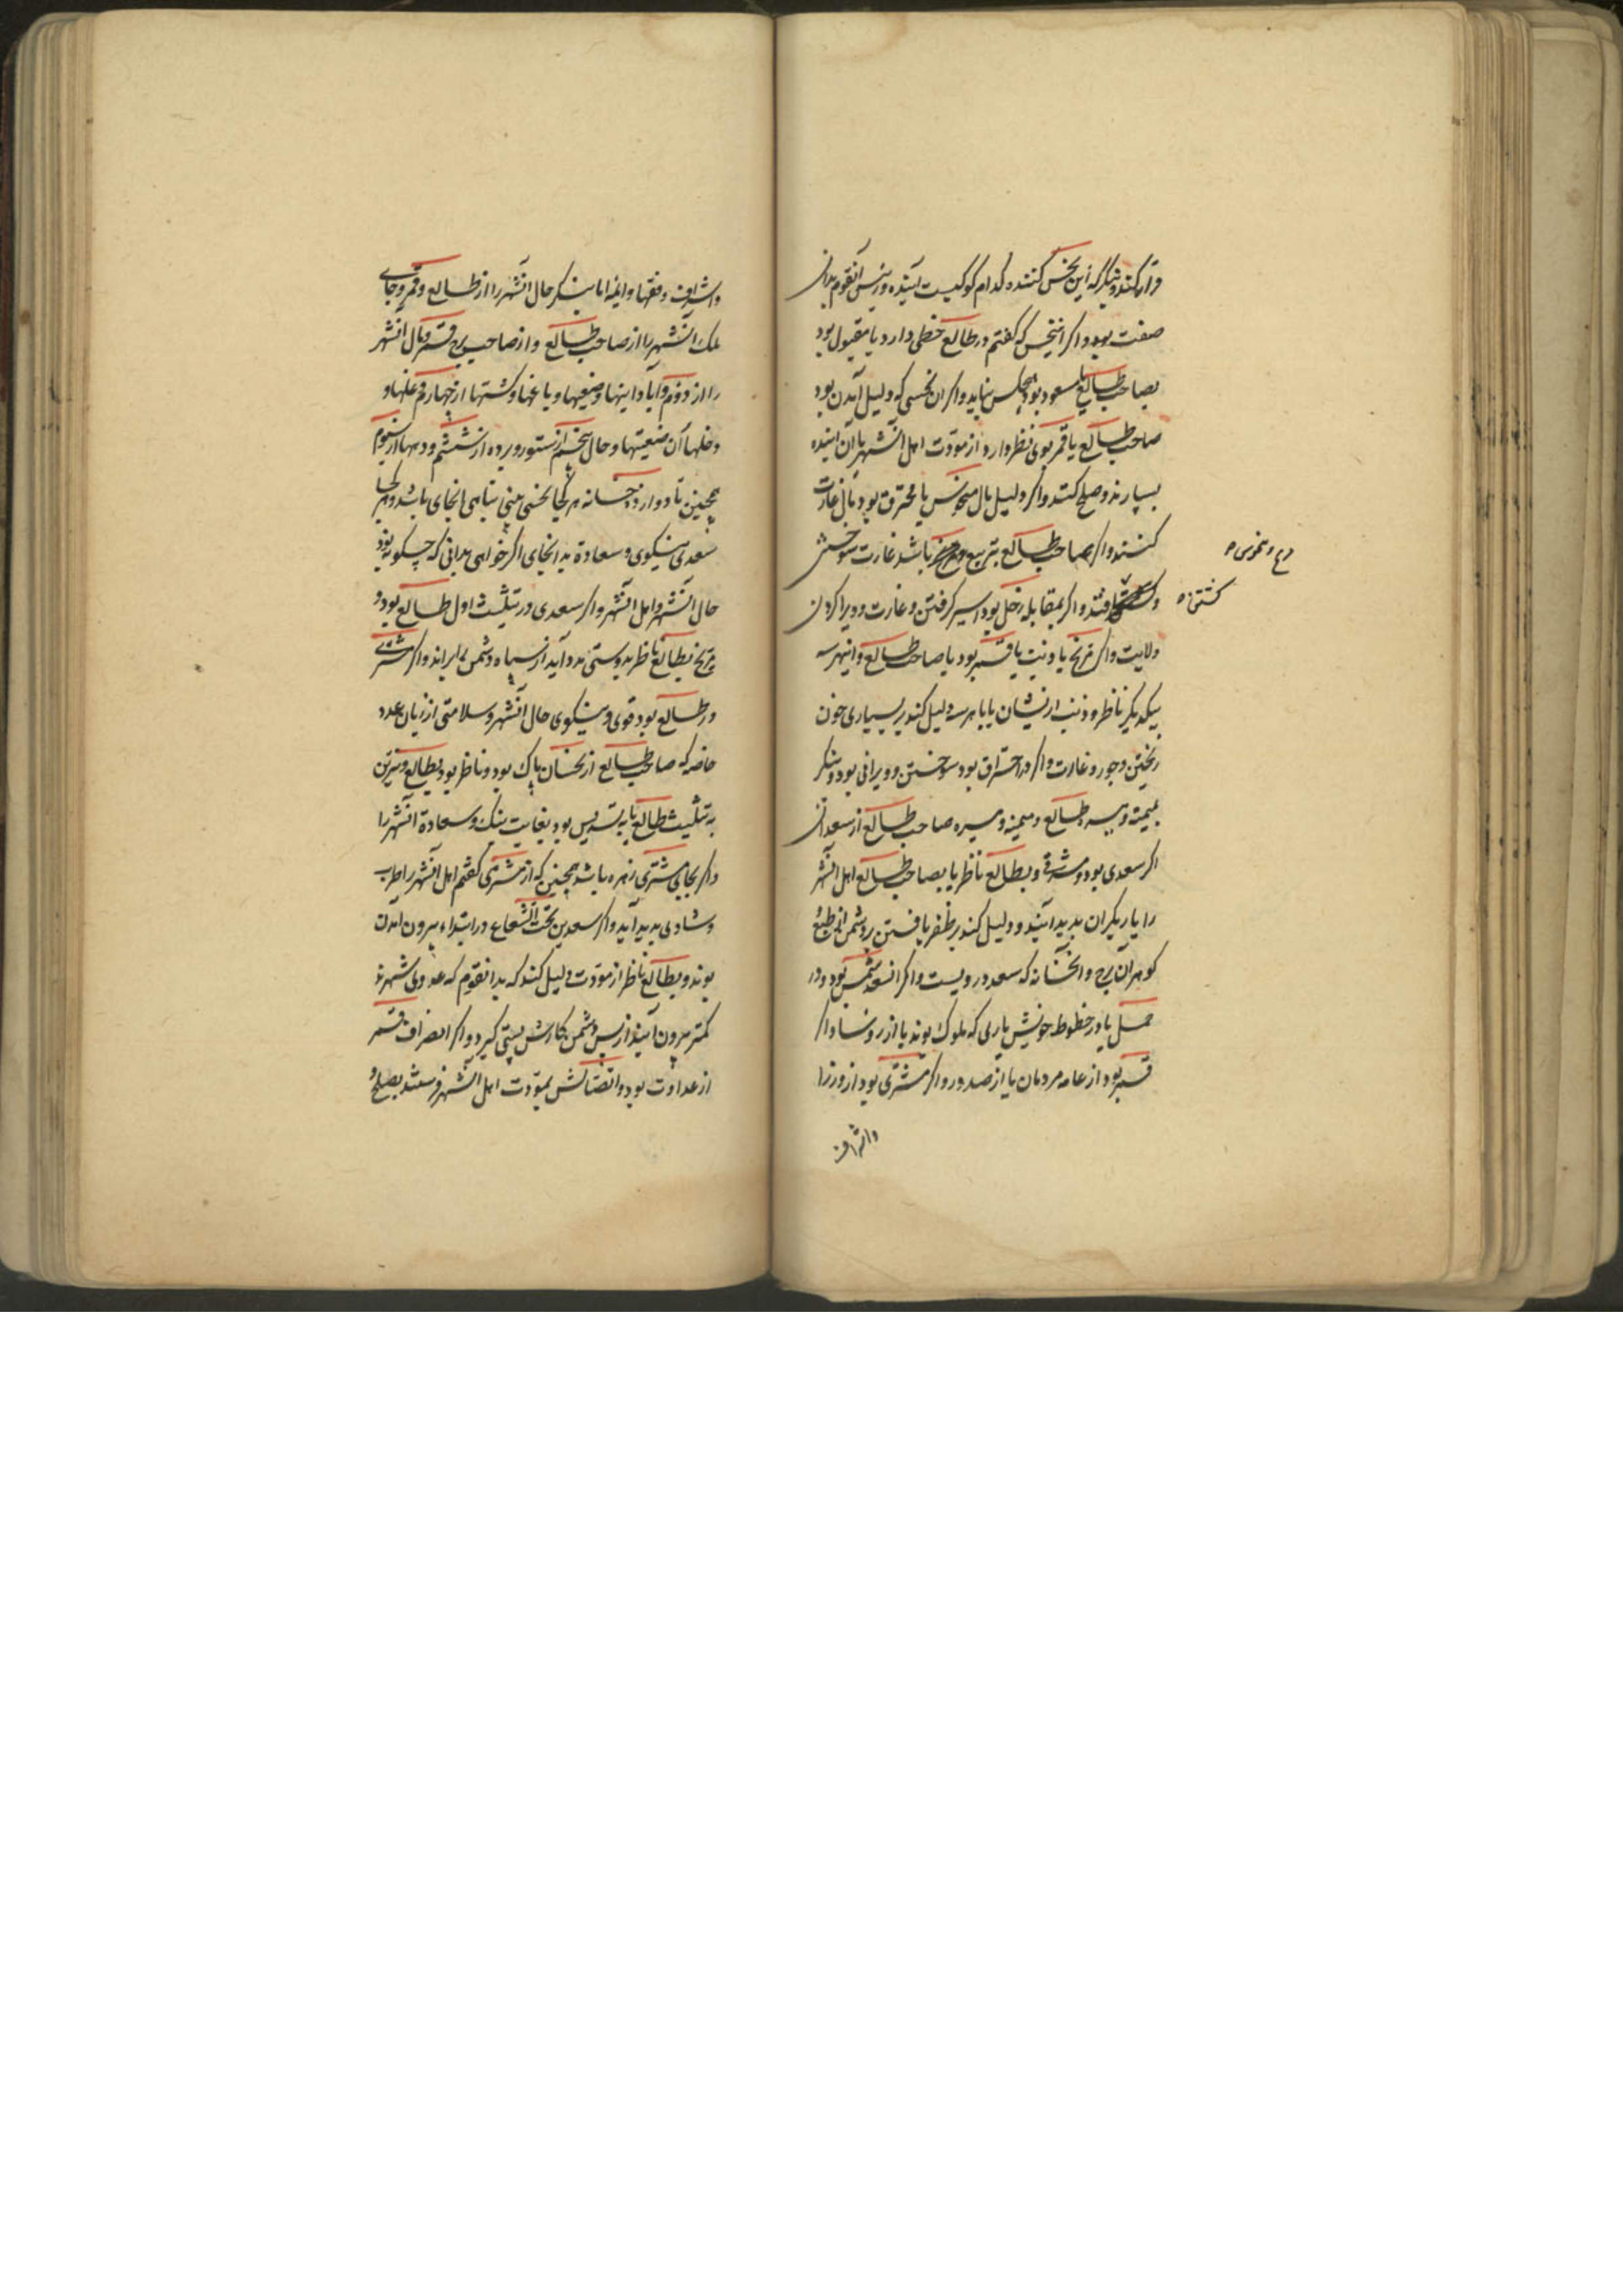 قرار کند و بنگر که این نحس کننده کدام کوکبست آینده و رئیس آنقوم بدان
صفت بود و اکر این نحس که کفتم در طالع خطی دارد یا مقبول بود
بصاحب طالع یا مسعود بود هیچکس نیاید و اکر ان نحسی که دلیل آمدن بود
صاحب طالع یا قمر بوی نظر دارد از مودت اهل آنشهر بآن آینده
بسپارند و صلح کنند و اکر دلیل مال منحوس یا محترق بود مال غارت
کنند و اکر بصاحب طالع بتربیع باشد غارت سوختن
و افتد و اکر بمقابله زحل بود اسیر کرفتن و غارت و ویرا کردن
کشتن ه
ولایت و اکر مریخ یا ذنب با قمر بود یا صاحب طالع و اینهر سه
بیکدیکر ناظر و ذنب ازیشان یا با هر سه دلیل کند بر بسیاری خون
ریختن و جور و غارت و اکر در احتراق بود سوختن و ویرانی بود و بنکر
بمیمنه و میسره طالع و میمنه و میسره صاحب طالع از سعدان
اکر سعدی بود و مشرقی و بطالع ناظر یا بصاحب طالع اهل آنشهر
را یاریکران پدید آیند و دلیل کند بر ظفر یافتن بر دشمن از طبع
کوهر آن برج و آنخانه که سعد درویست و اکر آنسعد شمس بود و در
حمل یا در خطوط خویش یاری که ملوک بوند یا از رؤسا و اکر
قمر بود از عامه مردمان یا از صدور و اکر مشتری بود از وزرا
و اشراف
و اشراف و فقها و ایمه اما بنکر حال آنشهر را از طالع و قمر و جای
ملک آنشهر را از صاحب طالع و از صاحب برج قمر و مال آنشهر
را از دوم و آبادانیها و ضیعتها و باغها و کشتها از چهارم و غلها و
دخلها آن ضیعتها و حال پنجم از ستور و برده از ششم و دیهها از سیوم
همچنین تا دوازده خانه هر کجا نحسی بینی تباهی بانجای باشد و هر کجا
سعدی نیکوی و سعادة بدانجای اکر خواهی بدانی که چکونه بود
حال آنشهر و اهل آنشهر و اکر سعدی در تثلیث اول طالع بود و
مریخ بطالع ناظر بدوستی مدد آید از سپاه و دشمن برانند و اکر مشتری
در طالع بود قوی و نیکوی حال آنشهر و سلامتی از زیان عدد
خاصه که صاحب طالع از نحسان پاک بود و ناظر بود بطالع و
به تثلیث طالع یا به تسدیس بود بغایت نیک و سعادة آنشهر را
و اکر بجای مشتری زهره باشد همچنین که از مشتری کفتم اهل آنشهر را طرب
و شادی پدید آید و اکر سعدین تحت الشعاع در ابتداء بیرون آمدن
بوند و بطالع ناظر از مودت دلیل کند که بدانقوم که عدوی شهرند
کمتر بیرون آیند از پس دشمن کارش پستی کیرد و اکر انصراف قمر
از عداوت بود و اتصالش بمودت اهل آنشهر فرستند بصلح و